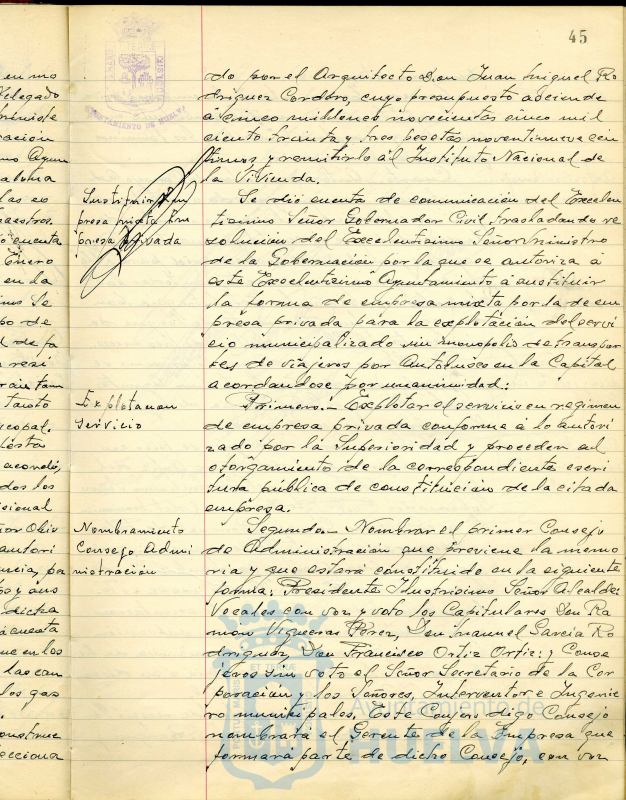 45
do por el Arquitecto Don Juan Miguel Ro
driguez Cordero, cuyo presupuesto asciende
a cinco millones novecientas cinco mil
ciento treinta y tres pesetas noventinueve cén
timos y remitirlo al Instituto Nacional de
la Vivienda.
Sustituir em
presa mixta em
presa privada
Se dio cuenta de comunicación del Excelen
tisimo Señor Gobernador Civil trasladando re
solución del Excelentisimo Señor Ministro
de la Gobernación por la que se autoriza á
este Excelentisimo Ayuntamiento á sustituir
la forma de empresa mixta por la de em
presa privada para la explotación del servi
cio municipalizado sin monopolio de transpor
tes de viajeros por Autobuses en la Capital
acordandose por unanimidad:
Explotacion
servicio
Primero.- Explotar el servicio en regimen
de empresa privada conforme a lo autori
zado por la Superioridad y proceden al
otorgamiento de la correspondiente escri
tura pública de constitución de la citada
empresa.
Nombramiento
Consejo Admi
nistración
Segundo.- Nombrar el primer Consejo
de Administración que previene la memo
ria y que estará constituido en la siguiente
forma: Presidente Ilustrisimo Señor Alcalde:
Vocales con voz y voto los Capitulares Don Ra
mon Vigueras Perez, Don Manuel Garcia Ro
driguez, Don Francisco Ortiz Ortiz: y Conse
jeros sin voto el Señor Secretario de la Cor
poración y los Señores, Interventor e Ingenie
ro municipales. Este Conjero digo Consejo
nombrará el Gerente de la Empresa que
formará parte de dicho Consejo, con voz
AYUNTAMIENTO DE HUELVA
Ayuntamiento de
HUELVA